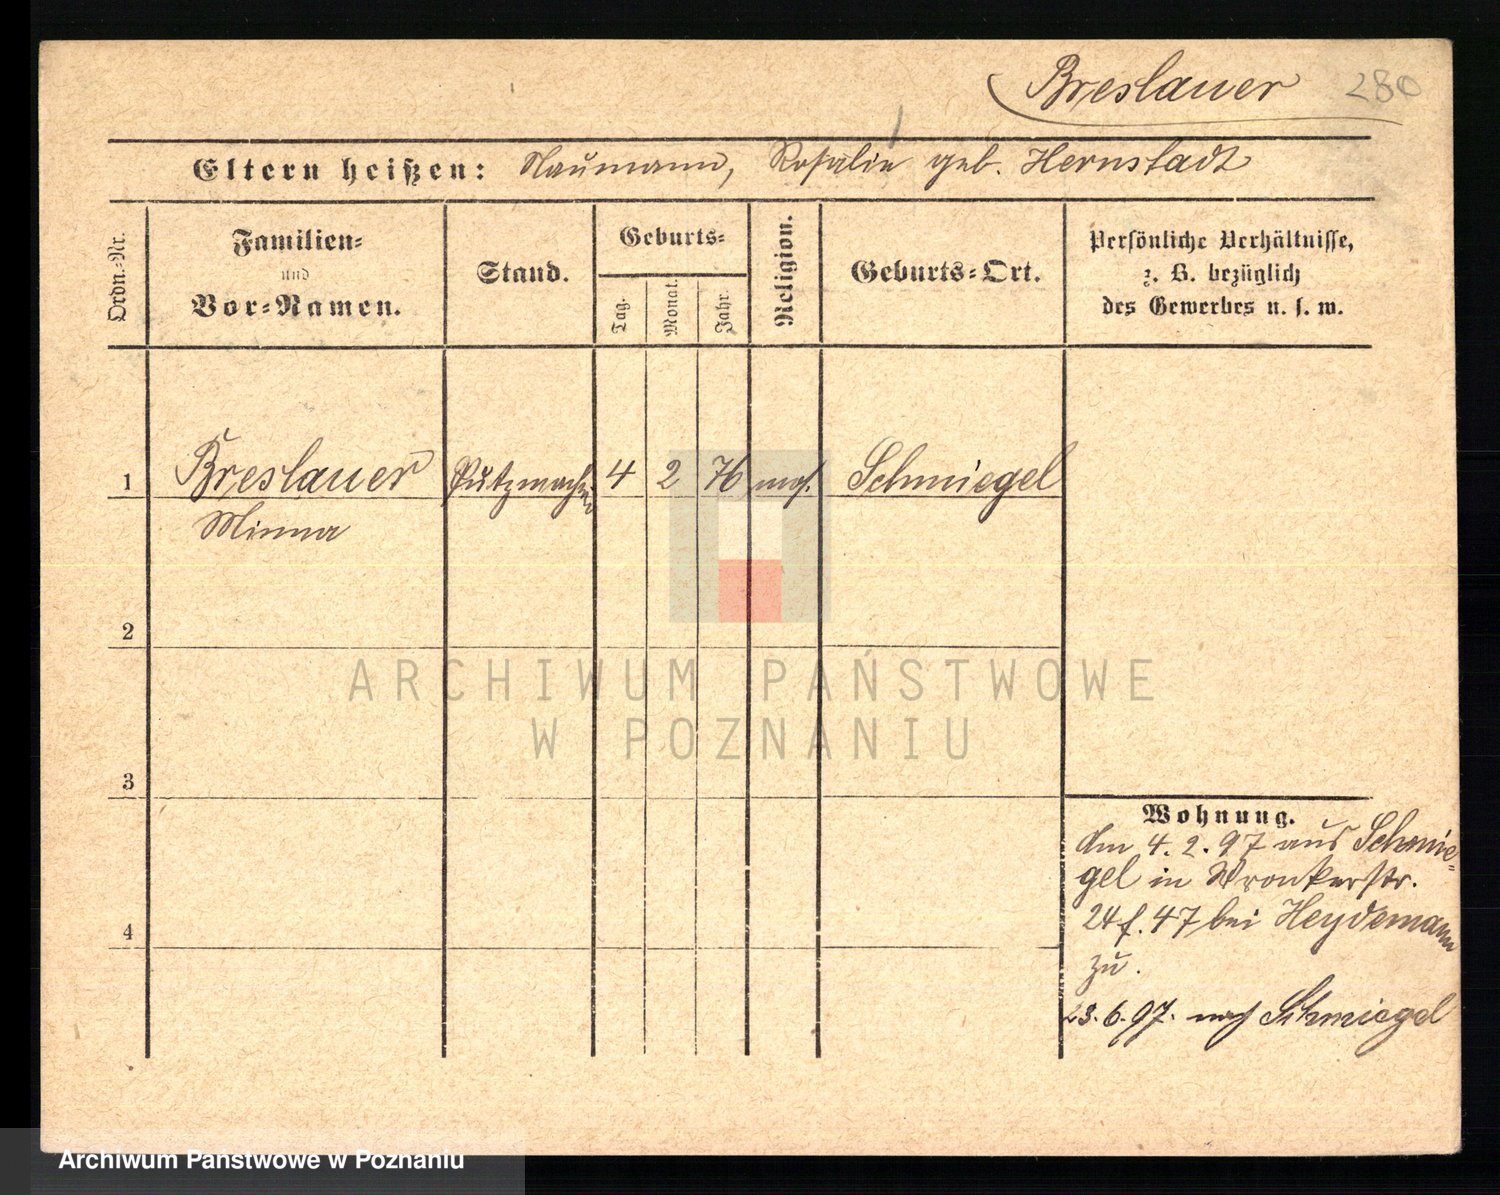 Breslauer 280
Eltern heißen: Naumann, Rosalie geb. Hernstadt
Ordn.-Nr.
Familien-
und
Vor-Namen.
Stand.
Geburts-
Tag.
Monat.
Jahr.
Religion.
Geburts-Ort.
Persönliche Verhältnisse,
z. B. bezüglich
des Gewerbes u. s. w.
1 Breslauer Putzmacherin 4 2 76 mos. Schmiegel
Minna
2
ARCHIWUM PAŃSTWOWE
W POZNANIU
3
Wohnung.
Am 4.2.97 aus Schmie-
gel in Wronkerstr.
24 f. 47 bei Heydemann
zu.
23.6.97. nach Schmiegel
4
Archiwum Państwowe w Poznaniu